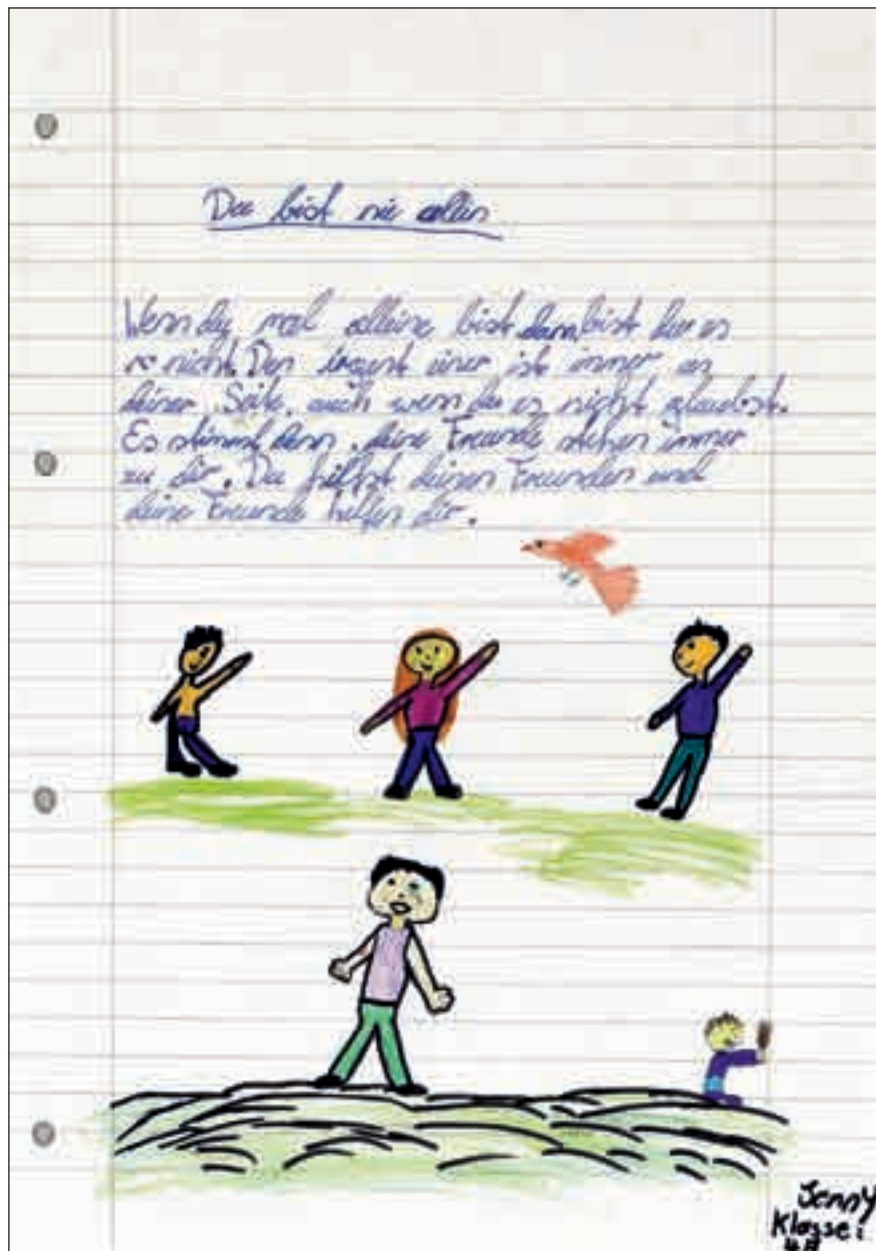 Du bist nie allein
Wenn du mal alleine bist dann bist du es
nicht. Den irgent einer ist immer an
deiner Seite, auch wenn du es nicht glaubst.
Es stimmt denn, deine Freunde stehen immer
zu dir. Du hilfst deinen Freunden und
deine Freunde helfen dir.
Jenny
Klasse: